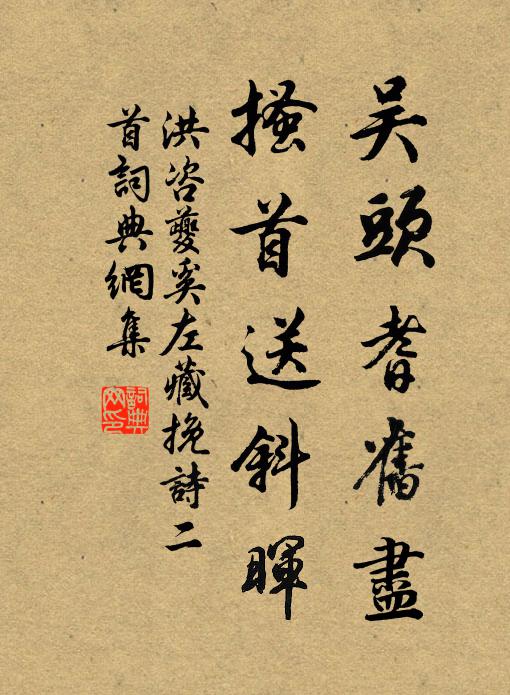 吴頭耆舊盡
搔首送斜暉
洪咨夔奚左藏挽詩二
首詞典網集
詞典
网印